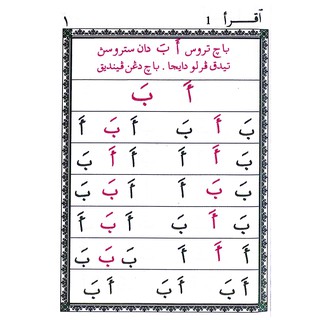 اقرأ 1 ١
باچ تروس أَ بَ دان ستروسڽ
تيدق ڤرلو دايجا . باچ دڠن ڤينديق
أَ بَ
بَ أَ بَ أَ بَ أَ
بَ أَ أَ أَ أَ بَ
بَ بَ أَ أَ بَ بَ
أَ أَ بَ بَ أَ أَ
بَ أَ أَ أَ بَ أَ
أَ بَ أَ بَ بَ بَ
أَ بَ أَ بَ أَ بَ